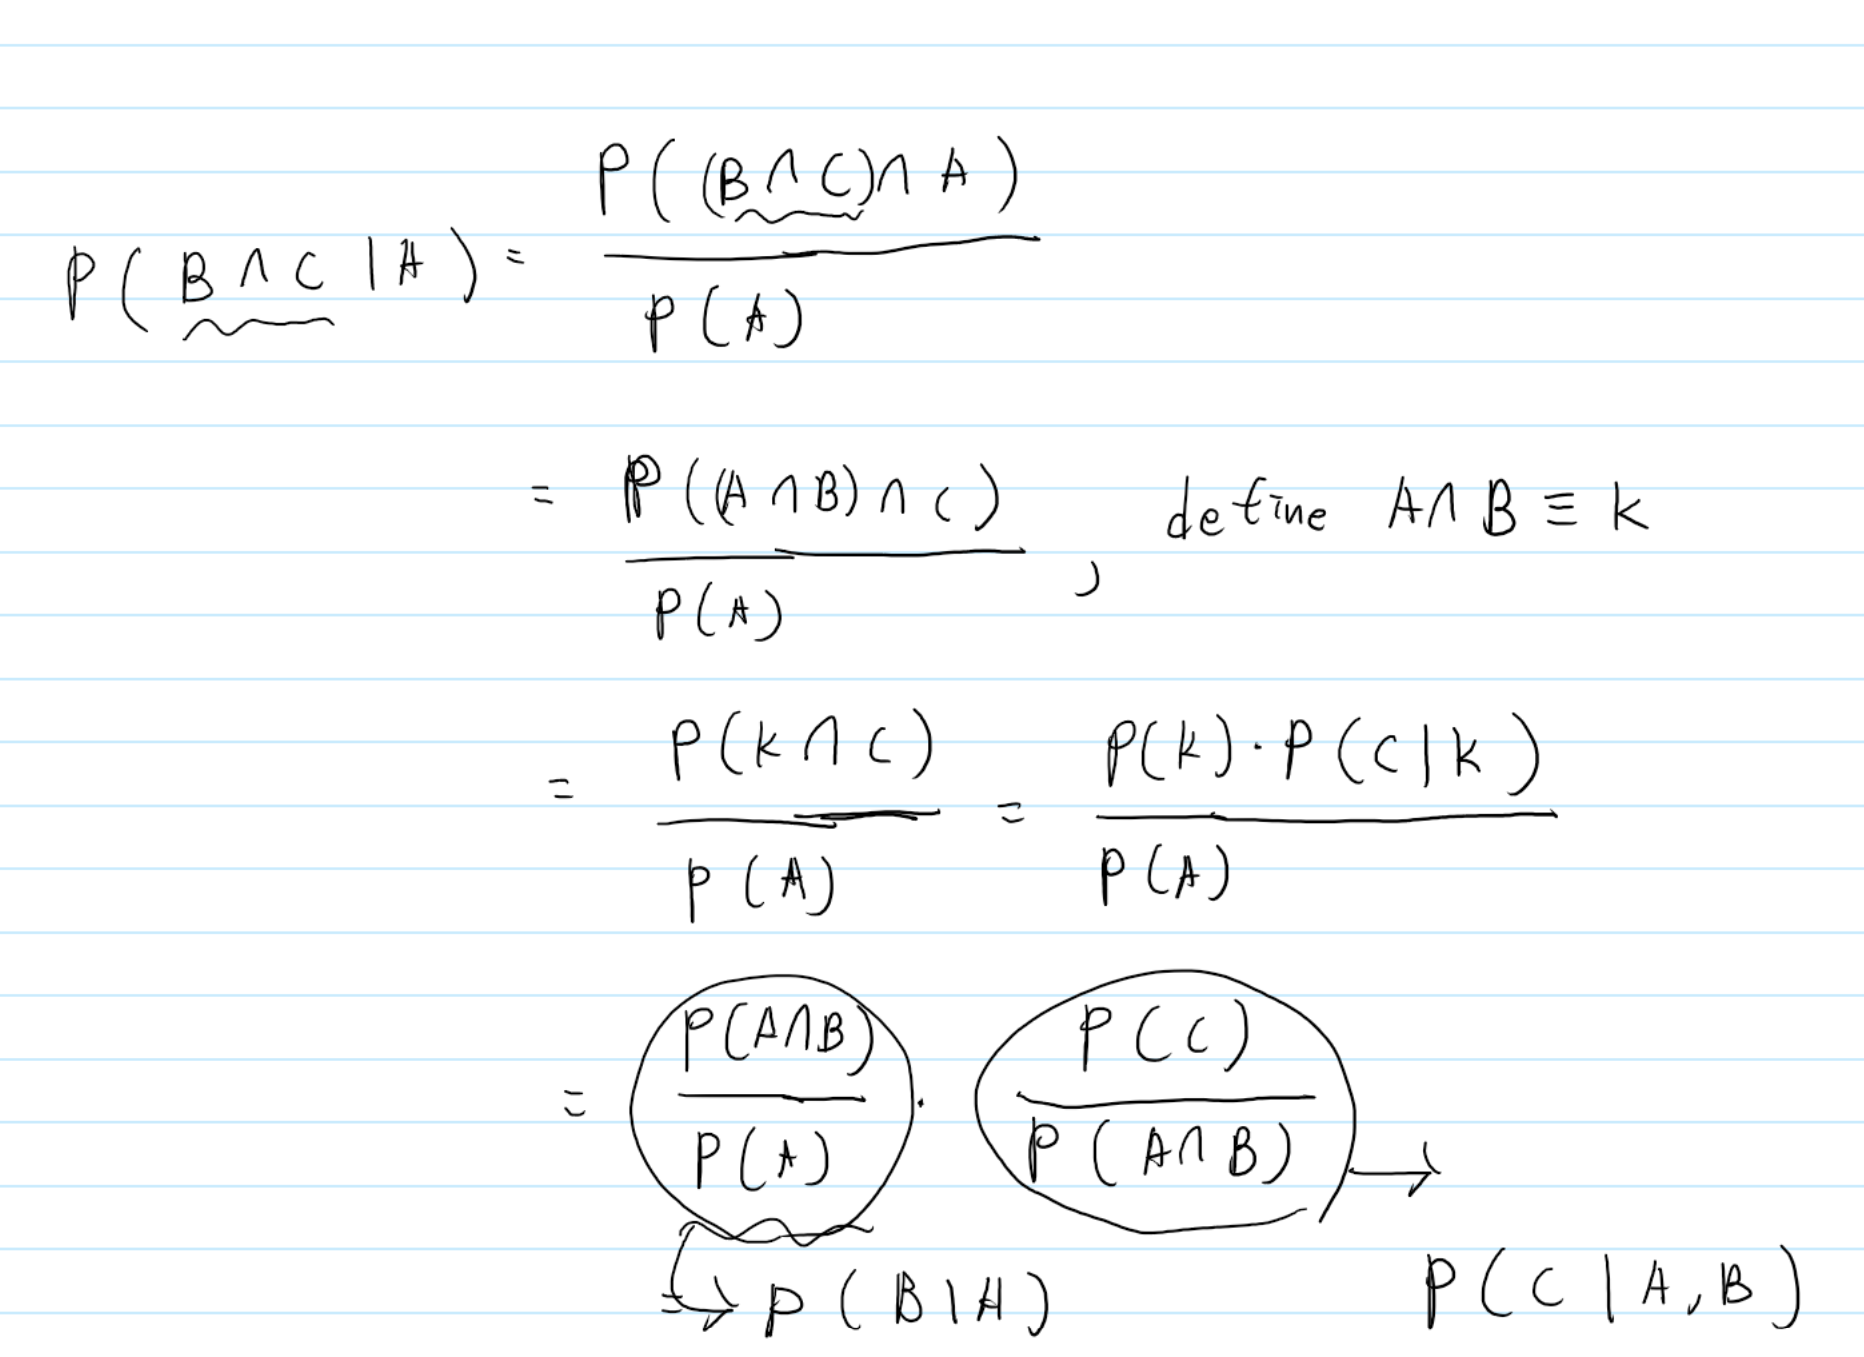 P( B ∩ C | A ) = P( (B ∩ C) ∩ A ) / P(A)
= P( (A ∩ B) ∩ C ) / P(A) , define A ∩ B ≡ K
= P( K ∩ C ) / P(A) = P(K) · P( C | K ) / P(A)
= P(A ∩ B) / P(A) · P(C) / P(A ∩ B) →
↳ P( B | A ) P( C | A, B )